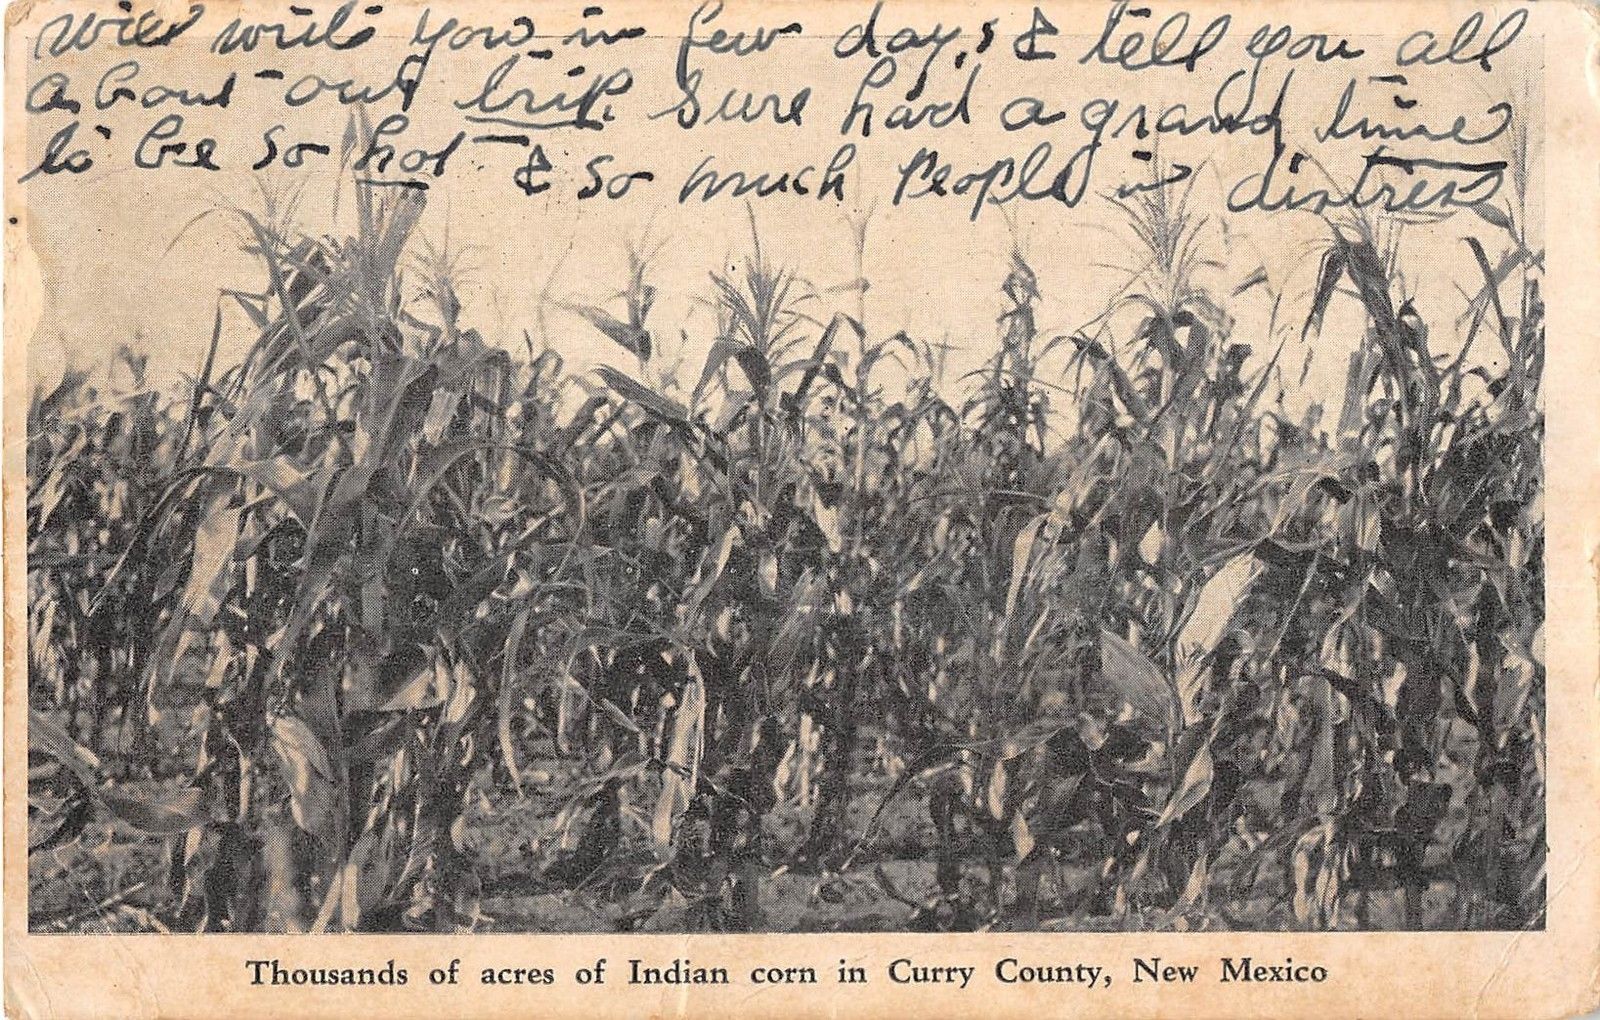 will write you in few days & tell you all
about our trip. Sure had a grand time
to be so hot & so much people in distress
Thousands of acres of Indian corn in Curry County, New Mexico